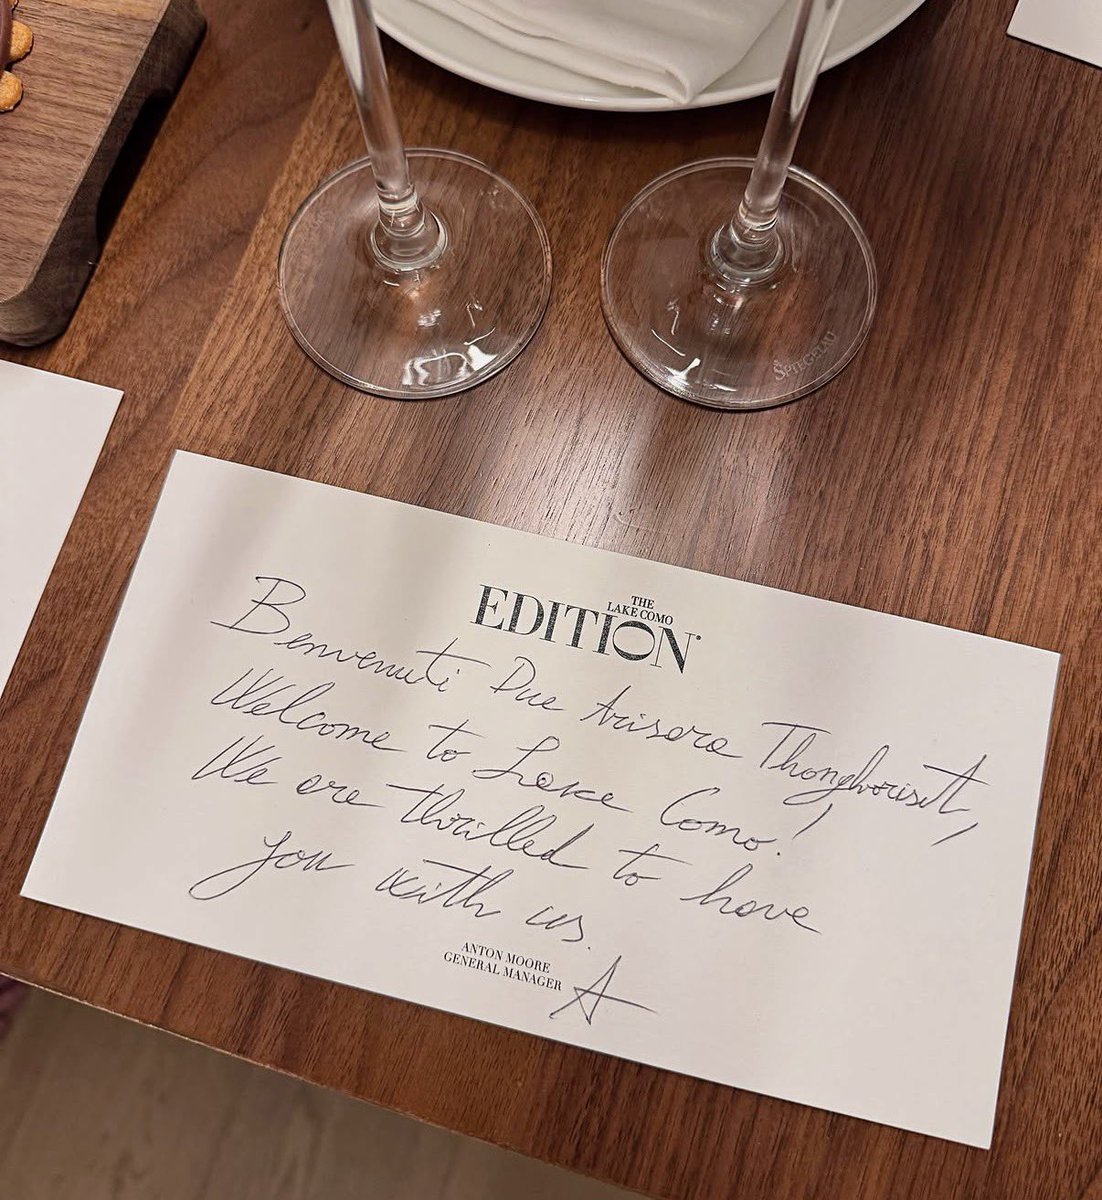 SPIEGELAU
THE
LAKE COMO
EDITION
Benvenuti Due Arisara Thongborisut,
Welcome to Lake Como!
We are thrilled to have
you with us.
ANTON MOORE
GENERAL MANAGER
A